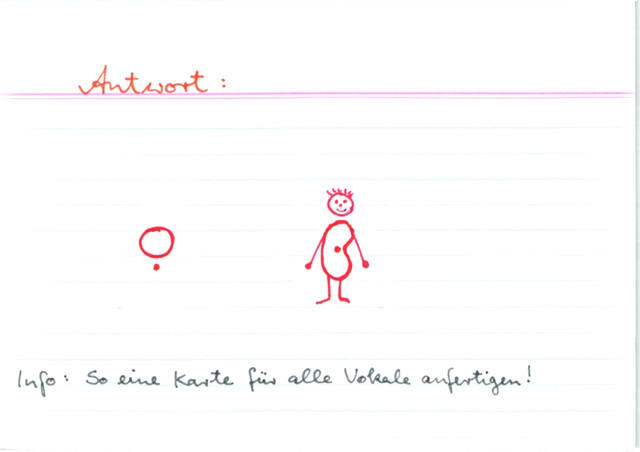 Antwort:
Info: So eine Karte für alle Vokale anfertigen!